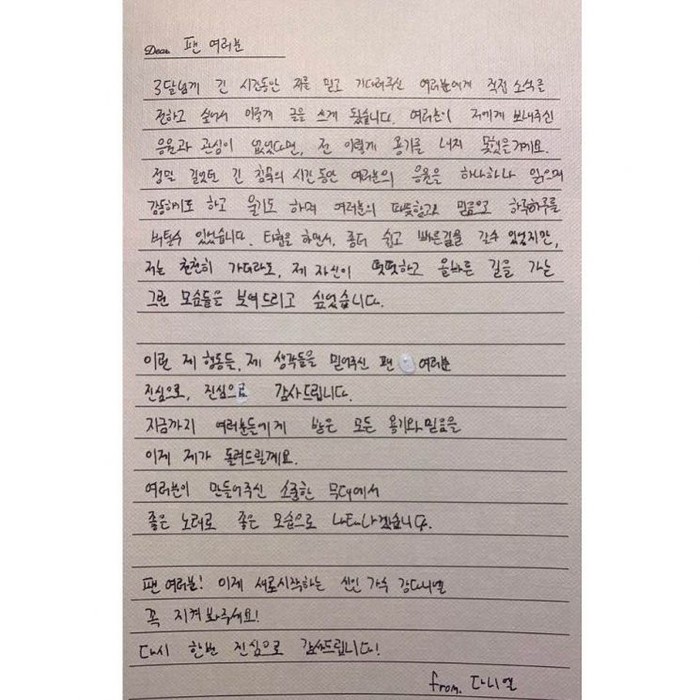 Dear 팬 여러분
3달넘게 긴 시간동안 저를 믿고 기다려주신 여러분에게 직접 소식을
전하고 싶어서 이렇게 글을 쓰게 됐습니다. 여러분이 저에게 보내주신
응원과 관심이 없었다면, 전 이렇게 용기를 내지 못했을거예요.
정말 길었던 긴 침묵의 시간동안 여러분의 응원을 하나하나 읽으며
감동하기도 하고 울기도 하며 여러분의 따뜻함과 믿음으로 하루하루를
버틸수 있었습니다. 타협을 하면서, 좀더 쉽고 빠른길을 갈수 있었지만,
저는 천천히 가더라도, 제 자신이 떳떳하고 올바른 길을 가는
그런 모습들을 보여드리고 싶었습니다.
이런 제 행동들, 제 생각들을 믿어주신 팬 여러분
진심으로, 진심으로 감사드립니다.
지금까지 여러분들에게 받은 모든 용기와 믿음을
이제 제가 돌려드릴게요.
여러분이 만들어주신 소중한 무대에서
좋은 노래로 좋은 모습으로 나타나겠습니다.
팬 여러분! 이제 새로시작하는 신인 가수 강다니엘
꼭 지켜봐주세요!
다시 한번 진심으로 감사드립니다!
from. 다니엘